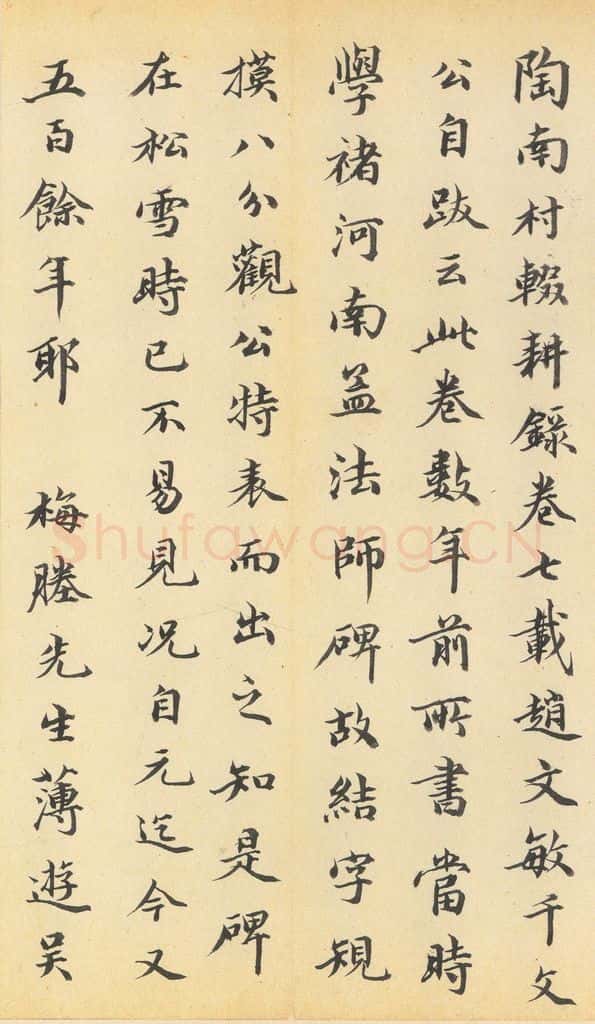 陶南村輟耕錄卷七載趙文敏千文
公自跋云此卷數年前所書當時
學褚河南孟法師碑故結字規
摸八分觀公特表而出之知是碑
在松雪時已不易見况自元迄今又
五百餘年耶 梅塍先生薄遊吴
Shufawang.CN